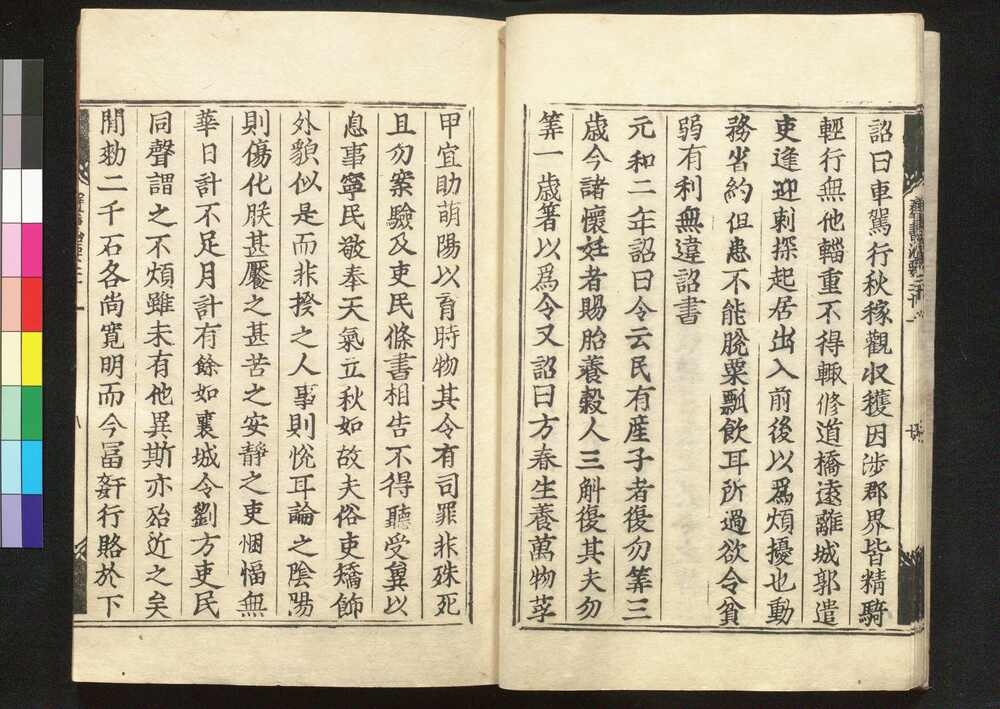 詔曰車駕行秋稼觀収穫因渉郡界皆精騎
輕行無他輜重不得輒修道橋遠離城郭遣
吏逢迎刺探起居出入前後以爲煩擾也動
務省約但患不能脫粟瓢飲耳所過欲令貧
弱有利無違詔書
元和二年詔曰令云民有産子者復勿筭三
歳今諸懷姙者賜胎養穀人三斛復其夫勿
筭一歳著以爲令又詔曰方春生養萬物莩
甲宜助萌陽以育時物其令有司罪非殊死
且勿案驗及吏民條書相告不得聽受兾以
息事寧民敬奉天氣立秋如故夫俗吏矯飾
外貌似是而非揆之人事則悅耳論之陰陽
則傷化朕甚饜之甚苦之安靜之吏悃愊無
華日計不足月計有餘如襄城令劉方吏民
同聲謂之不煩雖未有他異斯亦殆近之矣
間勑二千石各尚寬明而今冨姧行賂於下